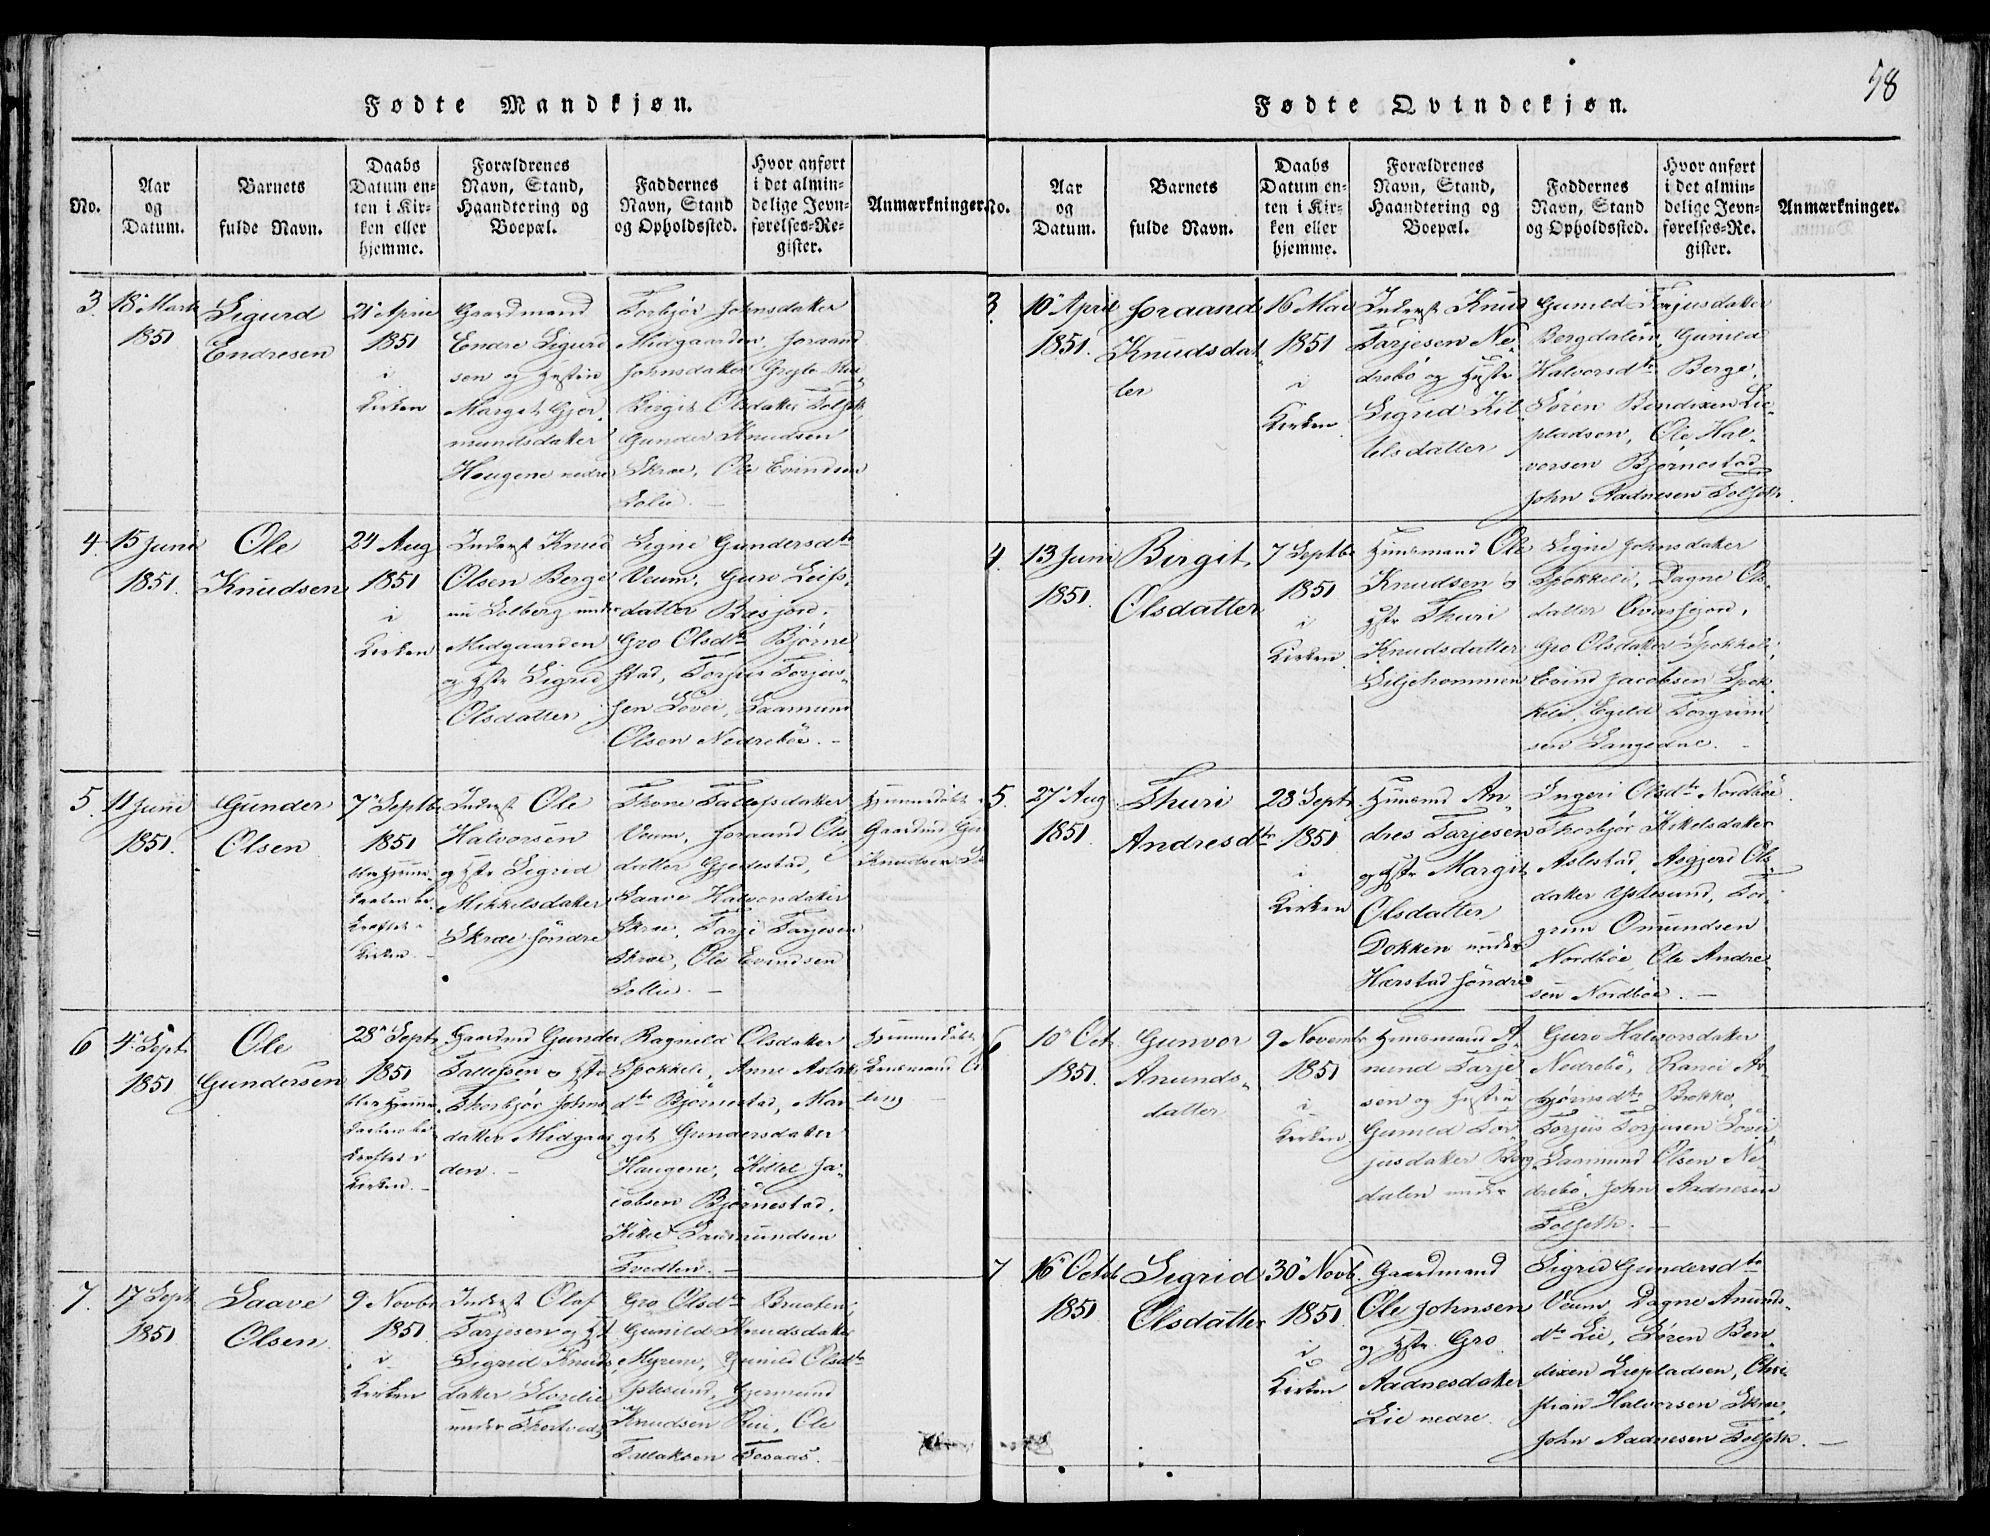 58
Fødte Mandkjøn.
No.
Aar
og
Datum.
Barnets
fulde Navn.
Daabs
Datum en-
ten i Kir-
ken eller
hjemme.
Forældrenes
Navn, Stand,
Haandtering og
Boepæl.
Faddernes
Navn, Stand
og Opholdssted.
Hvor anført
i det almin-
delige Jevn-
førelses-Re-
gister.
Anmærkninger.
3.
18 Marts
1851
Sigurd
Endresen
21 April
1851
i
Kirken
Gaardmand
Endre Sigurd
sen og Hustru
Margit Gjer
mundsdatter
Haugene nedre
Torbjør Johnsdatter
Midgaarden, Joraand
Johnsdatter
Birgit Olsdatter Tolseth
Gunder Knudsen
Skræ, Ole Evindsen
4.
15 Juni
1851.
Ole
Knudsen
24 Aug
1851
i
Kirken
Inderst Knud
Olsen Berge
under
Midgaarden
og Hstr Sigrid
Olsdatter
Signe Gundersdtr
Veum, Guro Leifs-
datter
Gro Olsdtr Bjørne
stad, Torjus Torjus-
sen Løver, Saamund
Olsen Nedrebøe. -
5.
11 Juni
1851.
Gunder
Olsen
7 Septbr
1851
Kirken
Inderst Ole
Halvorsen
og Hstr Sigrid
Mikkelsdatter
Skræ søndre
Tone Tallefsdatter
Veum, Joraand Ols
datter Gjedestad,
Saave Halvorsdatter
Skræ, Tarje Tarjesen
Skræ, Ole Evindsen
Hjemmedøbt
Gaardmd
Knudsen
6
4 Sept
1851
Ole
Gundersen
28 Septr
1851
Kirken. -
Gaardmd Gunder
Tallefsen & Hstr
Thorbjør Johns
datter Midgaar
den. -
Ragnild Olsdatter
Spokkeli, Anne Aslaks
dtr Bjørnestad, Mar
git Gundersdatter
Haugene, Kittel Ja-
cobsen Bjørnestad,
Kittil Saamundsen
Tvedten. -
Hjemmedøbt
7.
17 Sept
1851
Saave
Olsen
9 Novbr
1851
i
Kirken
Inderst Olaf
Tarjesen og Hst
Sigrid Knuds
datter
under
Gro Olsdtr
Gunild Knudsdatter
Myrene, Gunild Olsdtr
Ystesund, Gjermund
Knudsen Rui, Ole
Tallaksen
Fødte Qvindekjøn.
No.
Aar
og
Datum.
Barnets
fulde Navn.
Daabs
Datum en-
ten i Kir-
ken eller
hjemme.
Forældrenes
Navn, Stand,
Haandtering og
Boepæl.
Faddernes
Navn, Stand
og Opholdssted.
Hvor anført
i det almin-
delige Jevn-
førelses-Re-
gister.
Anmærkninger.
3.
10 April
1851.
Joraand
Knudsdat
ter
16 Mai
1851
i
Kirken
Inderst Knud
Tarjesen Ne-
drebö og Hustr
Sigrid Kit-
telsdatter
Gunild Torjusdatter
Bergdalen, Gunild
Halvorsdtr Berge,
Søren Bendixen Lie-
pladsen, Ole Hal-
vorsen Bjørnestad
John Aadnesen Tolseth.
4.
13 Juni
1851.
Birgit
Olsdatter
7 Septbr
1851
i
Kirken.
Huusmand Ole
Knudsen &
Hstr Thuri
Knudsdatter
Signe Johnsdatter
Spokkeli, Dagne Ols-
datter
Gro Olsdatter Spokkeli,
Evind Jacobsen Spok-
keli, Egild Torgrim
sen Langedac. -
5.
27 Aug
1851
Thuri
Andresdtr
28 Septr
1851
i
Kirken
Huusmd An-
dres Tarjesen
og Hstr Margit
Olsdatter
Dokken under
Hærstad søndre
Ingeri Olsdtr Nordböe
Thorbjør Kittelsdatter
Aslestad, Asgjerd Ols
datter Ystesund, Tor-
grim Omundsen
Nordböe, Ole Andre-
sen Nordböe. -
6
10 Oct
1851.
Gunvor
Anunds-
datter
9 Novembr
1851
i
Kirken
Huusmand A-
nund Tarje
sen og Hustru
Gunild Tor-
jusdatter Berg
dalen under
Guro Halvorsdatter
Nedrebö, Ranei As-
bjørnsdtr Brokke,
Torjus Torjusen
Saamund Olsen Ne-
drebö, John Aadnesen
Tolseth. -
7
16 Octob
1851
Sigrid
Olsdatter
30 Novb.
1851
i
Kirken
Gaardmand
Ole Johnsen
og Hstr. Gro
Aadnesdatter
Lie nedre.
Sigrid Gundersdtr
Veum, Dagne Anunds-
dtr Lie, Søren Ben
dixen Liepladsen, Chri-
stian Halvorsen Skræ,
John Aadnesen Tolseth. -